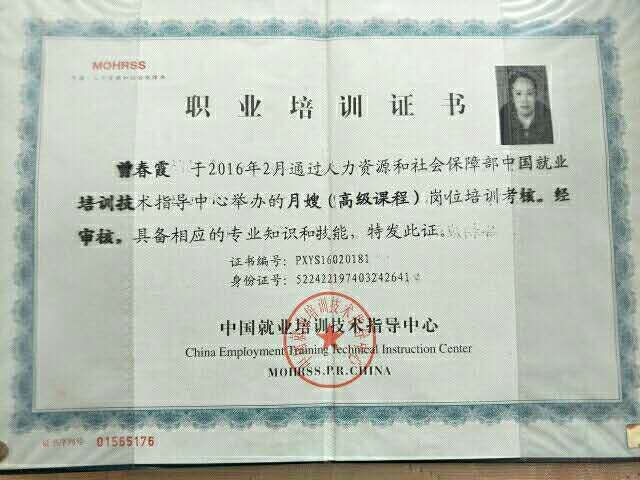 MOHRSS
职业培训证书
曹春霞 于2016年2月通过人力资源和社会保障部中国就业
培训技术指导中心举办的月嫂（高级课程）岗位培训考核。经
审核。具备相应的专业知识和技能，特发此证。
证书编号：PXYS16020181
身份证号：522422197403242641
中国就业培训技术指导中心
China Employment Training Technical Instruction Center
MOHRSS.P.R.CHINA
证书序列号 01565176